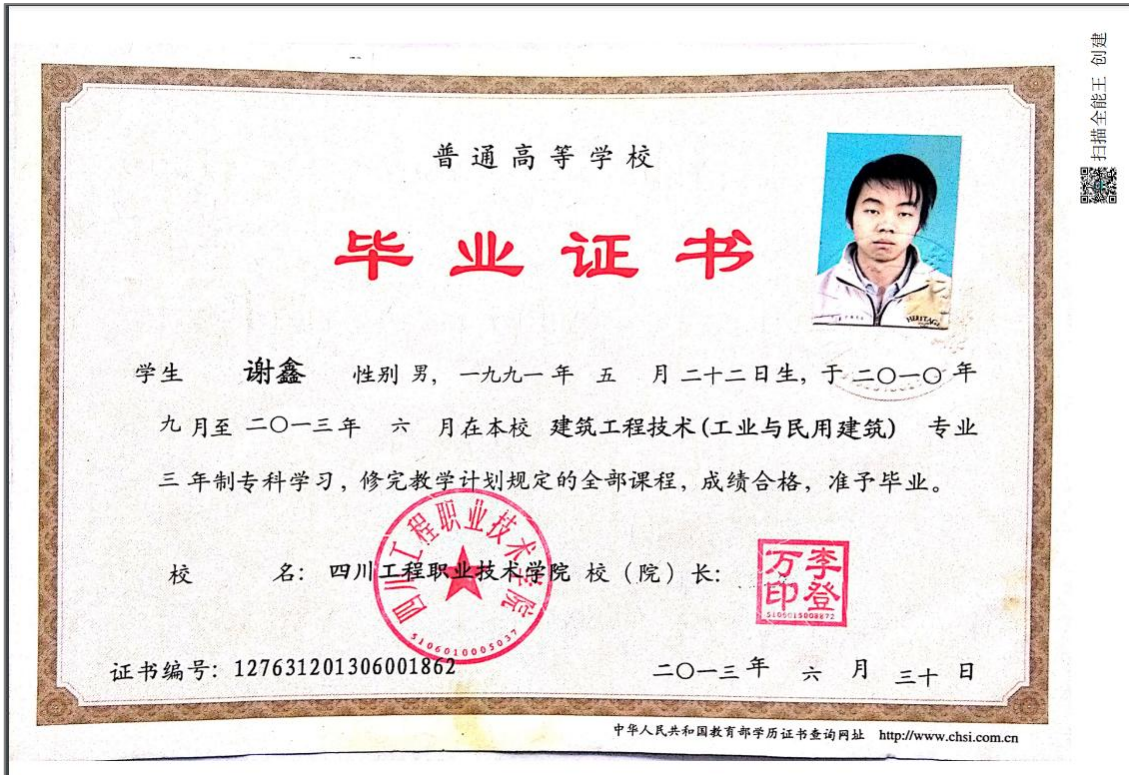 普通高等学校
毕业证书
学生 谢鑫 性别 男，一九九一年 五 月二十二日生，于二〇一〇年
九月至二〇一三年 六 月在本校 建筑工程技术(工业与民用建筑) 专业
三年制专科学习，修完教学计划规定的全部课程，成绩合格，准予毕业。
校 名：四川工程职业技术学院 校（院）长：
四川工程职业技术学院
5106010005037
李登万印
证书编号：127631201306001862
二〇一三年 六 月 三十 日
中华人民共和国教育部学历证书查询网址 http://www.chsi.com.cn
扫描全能王 创建